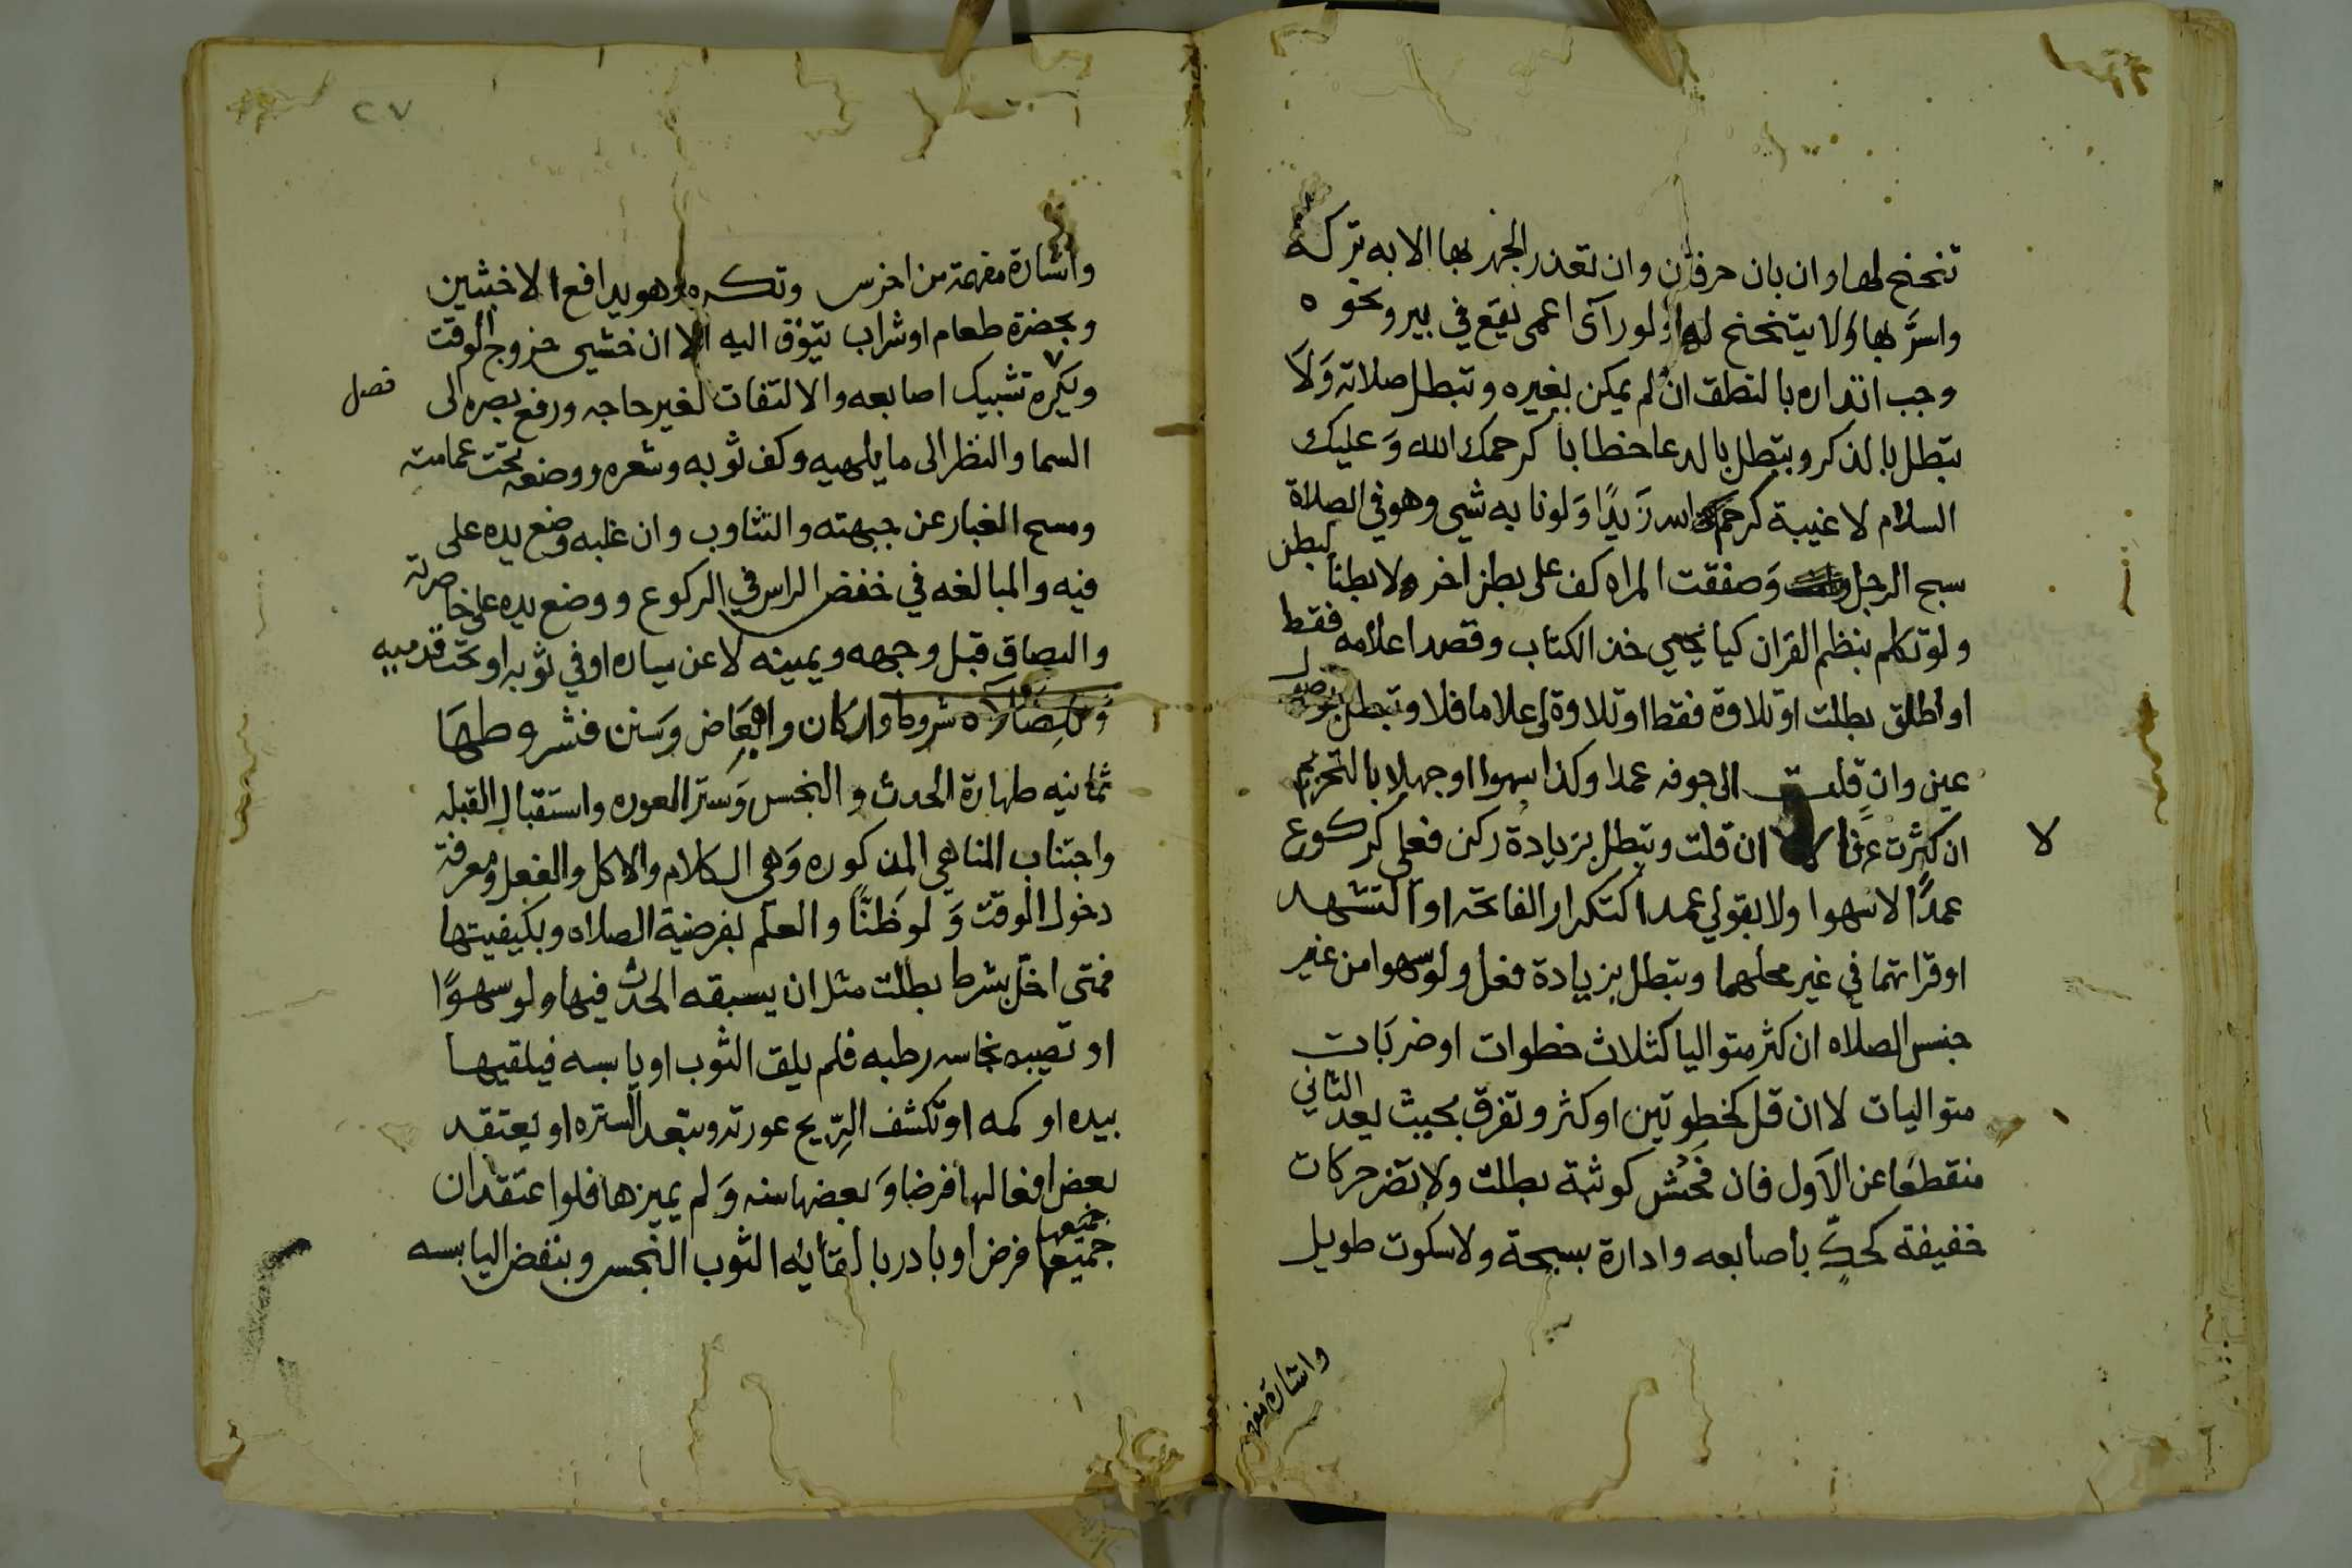 تنحنح لها وان بان حرفان وان تعذر الجهر بها الا به تركه
واسرَّ بها ولا يتنحنح لها ولو رآى اعمى يقع في بير ونحوه
وجب انذاره بالنطق ان لم يمكن بغيره وتبطل صلاته وَلَا
تبطل بالذكر وتبطل بالدعا خطابا كرحمك الله وَعليك
السلام لا غيبة كرحم الله زَيدًا وَلو نابه شي وهو في الصلاة
سبح الرجل وَصفقت المراه كف على بطن اخر ولا بطنا لبطن
ولو تكلم بنظم القران كيا يحيي خذ الكتاب وقصد اعلامه فقط
او اطلق بطلت او تلاوة فقط او تلاوة واعلاما فلا وتبطل بوصول
عين وان قلت الى جوفه عمدا وكذا سهوا او جهلا بالتحريم
ان كثرت عرفا لا ان قلت وتبطل بزيادة ركن فعلي كركوع
لا
عمدًا لا سهوا ولا بقولي عمدا كتكرار الفاتحه او التشهد
او قراتهما في غير محلهما وتبطل بزيادة فعل ولو سهوا من غير
جنس الصلاه ان كثر متواليا كثلاث خطوات او ضربَات
متواليات لا ان قل كخطوتين او كثر وتفرق بحيث يعد الثاني
منقطعًا عن الاَول فان فَحُش كوثبة بطلت ولا تضر حركات
خفيفة كحكٍّ باصابعه وادارة بسبحة ولا سكوت طويل
واشارة مفهمة
٢٧
واشارة مفهمة من اخرس وتكره وهو يدافع الاخبثين
وبحضرة طعام او شراب يتوق اليه الا ان خشي خروج الوقت
ويكره تشبيك اصابعه والالتفات لغير حاجه ورفع بصره الى
فصل
السما والنظر الى ما يلهيه وكف ثوبه وشعره ووضعه تحت عمامته
ومسح الغبار عن جبهته والتثاوب وان غلبه وضع يده على
فيه والمبالغه في خفض الراس في الركوع ووضع يده على خاصرته
والبصاق قبل وجهه ويمينه لا عن يساره او في ثوبه او تحت قدميه
وَللِصَّلاه شروط واركان وابعَاض وَسنن فشروطهَا
ثمانيه طهارة الحدث والنجس وَستر العوره واستقبال القبله
واجتناب المناهي المذكوره وَهي الكلام والاكل والفعل ومعرفة
دخول الوقت وَلو ظنًّا والعلم بفرضية الصلاه وبكيفيتها
فمتى اخل بشرط بطلت مثل ان يسبقه الحدث فيها ولو سهوًا
او تصيبه نجاسه رطبه فلم يلق الثوب او يابسه فيلقيها
بيده او كمه او تكشف الرِّيح عورته وتبعد الستره او يعتقد
بعض افعالها فرضا وَبعضها سنه وَلم يميزها فلو اعتقد ان
جميعها
جميعها فرض او بادر بالقايه الثوب النجس وبنفض اليابسه